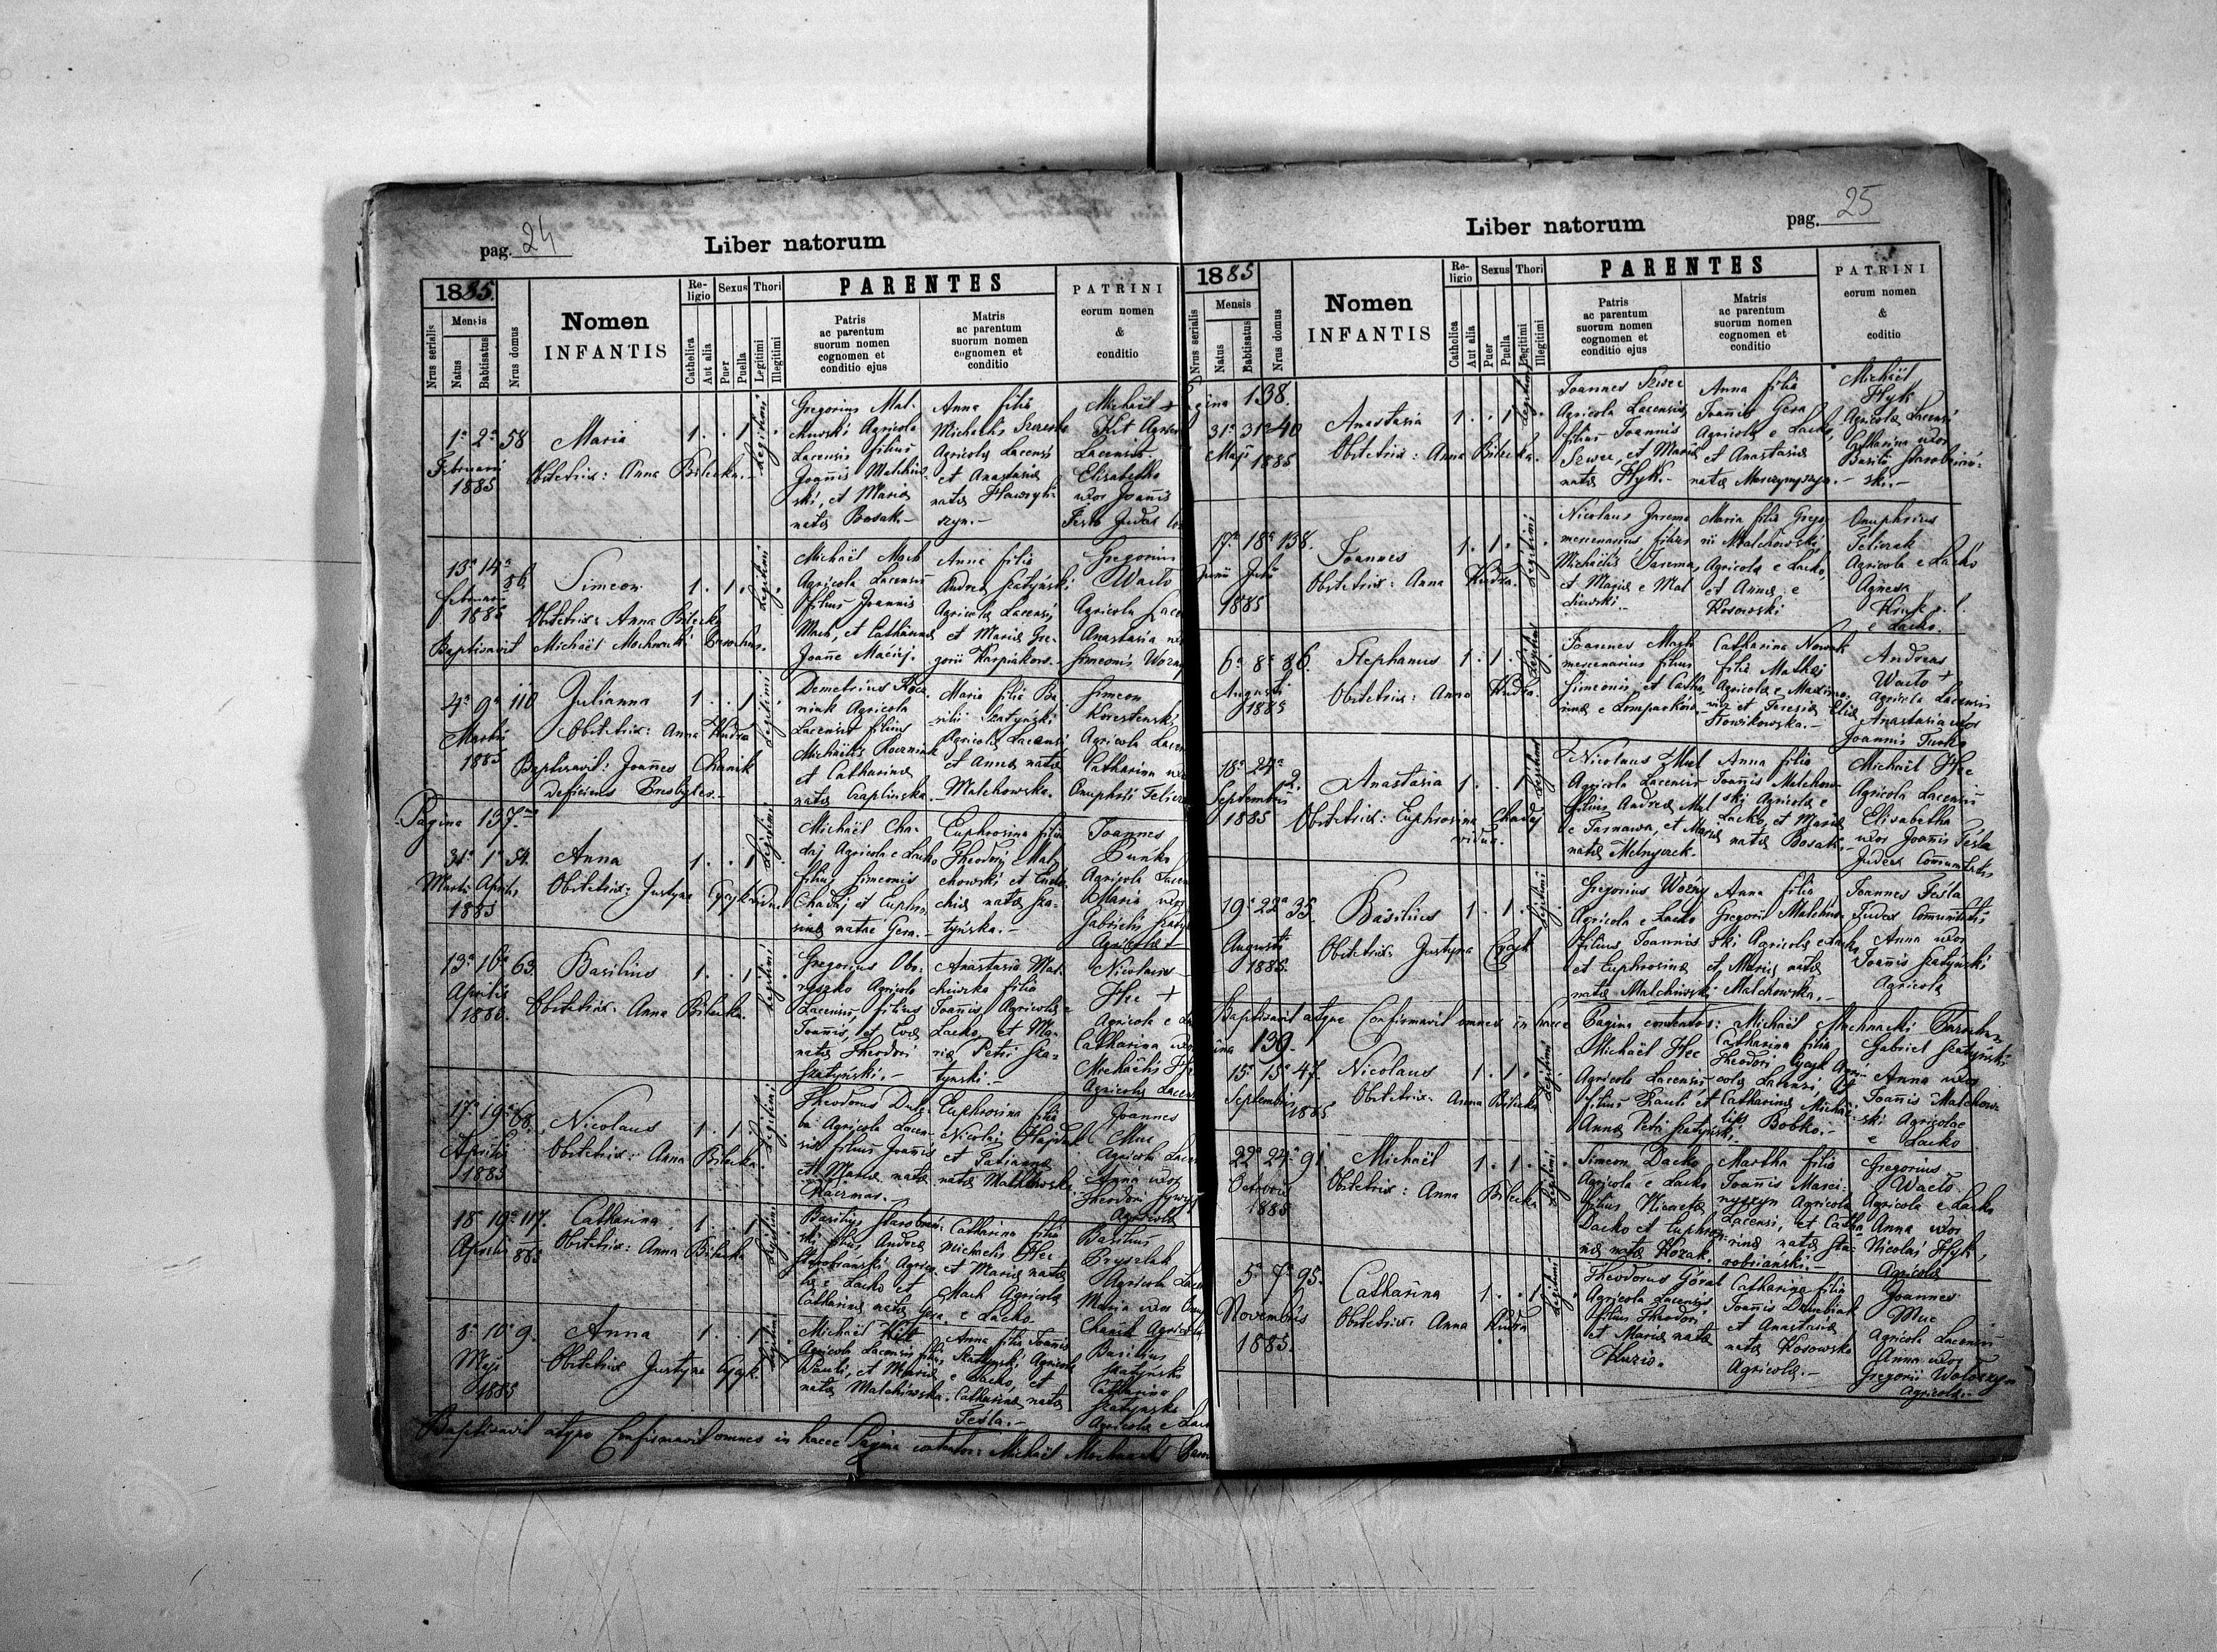 pag. 24
Liber natorum
1885.
Nrus serialis
Mensis
Natus
Babtisatus
Nrus domus
Nomen
INFANTIS
Re-
ligio
Catholica
Aut alia
Sexus
Puer
Puella
Thori
Legitimi
Illegitimi
PARENTES
Patris
ac parentum
suorum nomen
cognomen et
conditio ejus
Matris
ac parentum
suorum nomen
cognomen et
conditio
PATRINI
eorum nomen
&
conditio
1a 2a 58
Februarii
1885
Maria
Obstetrix: Anna Bilecka.
1 . . 1
Legitimi
Gregorius Mal-
chowski Agricola
Lacensis filius
Joannis Melchiw-
ski, et Mariae
natae Bosak.-
Anna filia
Michaelis
Agricolae Lacensis
et Anastasiae
natae
szyn.-
Michaël +
Kit
Lacensis.
Elisabetha
uxor Joannis
Tesla Judex
13a 14a 86
Februarii
1885
Simeon
Obstetrix: Anna Bilecka
Baptisavit Michaël Mochnacki Parochus.
1 . 1 .
Legitimi
Michaël Mach
Agricola Lacensis
filius Joannis
Mach, et Catharinae
Joanne Maciej.
Anna filia
Andreae Szatyński
Agricolae Lacensis
et Mariae Gre-
gorii Karpiakow.-
Gregorius
Wacto
Agricola
Anastasia
Simeonis Wozny
4a 9a 110
Martii
1885
Julianna
Obstetrix: Anna Kudra
Baptisavit: Joannes Chanik
deficiens Presbyter.-
1 . . 1
Legitimi
Demetrius
niak Agricola
Lacensis filius
Michaelis
et Catharinae
natae Czaplinska.-
Maria filia Ba-
silii Szatyński
Agricolae Lacensis
et Annae natae
Malchowska.
Simeon
Korostenski
Agricola
Catharina
Onuphrii
Pagina 137.
31a 1a 51.
Martii Aprilis
1885
Anna
Obstetrix: Justyna Cycyk vidua
1 . . 1
Legitimi
Michaël Cha-
daj Agricola e Lacko
filius Simeonis
Chadaj et Euphro-
sinae natae Gera.-
Euphrosina filia
Theodori Mal-
chowski et Eudo-
chiae natae Sza-
tyńska.-
Joannes
Buńko
Agricola
Maria uxor
Gabrielis
Agricolae
13a 16a 63.
Aprilis
1885.
Basilius
Obstetrix: Anna Bilecka.
1 . . 1
Legitimi
Gregorius Obo-
ryszko Agricola
Lacensis, filius
Joannis, et Evae
natae Theodori
Szatyński.-
Anastasia Mal-
chiwska filia
Joannis, Agricolae e
Lacko, et Ma-
riae, Petri Sza-
tynski.-
Nicolaus
Hec +
Agricola e
Catharina uxor
Michaelis
Agricolae
17a 19a 68.
Aprilis
1885
Nicolaus
Obstetrix: Anna Bilecka.
1 . 1 .
Legitimi
Theodorus
Agricola Lacen-
sis filius Joannis
et Mariae natae
Kaczmar.
Euphrosina filia
Nicolai Hajduk
et Tatiannae
natae Malchowska.
Joannes
Muc
Agricola
Anna uxor
Theodori
Agricolae
18 19a 117.
Aprilis 885
Catharina
Obstetrix: Anna Bilecka
1 . . 1
Legitimi
Basilius Starobran-
ski filius Andreae
Starobranski Agrico-
lae e Lacko et
Catharinae natae Gera.
Catharina filia
Michaelis Hec
et Mariae natae
Mach Agricolae
e Lacko.
Basilius
Pryszlak
Agricola
Maria uxor
Chanik Agricola
8a 10a 9.
Maji
1885
Anna
Obstetrix Justyna Cycyk.
1 . . 1
Legitimi
Michaël Kitt
Agricola Lacensis filius
Pauli, et Mariae
natae Malchiwska.
Anna filia Joannis
Szatynski Agricolae
e Lacko, et
Catharinae natae
Teśla.-
Basilius
Szatynski
Catharina
Szatynska
Agricolae e
Baptisavit atque Confirmavit omnes in haece Pagina contentos: Michaël Mochnacki
pag. 25
Liber natorum
1885
Nrus serialis
Mensis
Natus
Babtisatus
Nrus domus
Nomen
INFANTIS
Re-
ligio
Catholica
Aut alia
Sexus
Puer
Puella
Thori
Legitimi
Illegitimi
PARENTES
Patris
ac parentum
suorum nomen
cognomen et
conditio ejus
Matris
ac parentum
suorum nomen
cognomen et
conditio
PATRINI
eorum nomen
&
coditio
138.
31a 31a 40
Maji 1885
Anastasia
Obstetrix: Anna Bilecka.
1 . . 1
Legitimi
Joannes Szwec
Agricola Lacensis,
filius Joannis
Szwec, et Mariae
natae Hyk.-
Anna filia
Joannis Gera
Agricolae e Lacko,
et Anastasiae
natae
Michaël
Hyk
Agricola Lacensis
Catharina uxor
Basilii Starobrań-
ski.-
17a 18a 138.
Junii
1885
Joannes
Obstetrix: Anna Kudra.
1 . 1 .
Legitimi
Nicolaus Jarema
mercenarius filius
Michaelis Jarema,
et Mariae e Mal-
chiwski.-
Maria filia Grego-
rii Malchowski,
Agricolae e Lacko,
et Annae e
Kosowski
Onuphrius
Agricola e Lacko
Agnesa
e Lacko.
6a 8a 86.
Augusti
1885
Stephanus
Obstetrix: Anna Kudra.
1 . 1 .
Legitimi
Joannes Mach
mercenarius filius
Simeonis, et Catha-
rinae e
Catharina Nowak
filia Mathaei
Agricolae e Maximo-
vitz et Teresiae
Andreas
Wacto +
Agricola Lacensis
Anastasia uxor
Joannis
18a 24a 2.
Septembris
1885
Anastasia
Obstetrix: Euphrosina Chadej
vidua.
1 . . 1
Legitimi
Nicolaus Mul
Agricola Lacensis
filius Andreae Mul
e Tarnawa, et Mariae
natae Melnyczek.
Anna filia
Joannis Malchow-
ski Agricolae e
Lacko, et Mariae
natae Bosak.-
Michaël Hec
Agricola Lacensis
Elisabetha
uxor Joannis Teśla
19a 22a 35.
Augusti
1885.
Basilius
Obstetrix Justyna Cycyk
1 . 1 .
Legitimi
Gregorius Woźny
Agricola e Lacko
filius Joannis
et Euphrosinae
natae Malchiwski
Anna filia
Gregorii Malchow-
ski Agricolae e Lacko,
et Mariae natae
Malchowska.-
Joannes Teśla
Judex Communitatis
Anna uxor
Joannis Szatyński
Agricolae
Baptisavit atque Confirmavit omnes in haece Pagina contentos: Michaël Mochnacki Parochus
139.
15a 15a 47.
Septembris
1885
Nicolaus
Obstetrix: Anna Bilecka
1 . 1 .
Legitimi
Michaël Hec
Agricola Lacensis,
filius Pauli et
Annae Petri Szatyński.
Catharina filia
Theodori Cycyk Agri-
colae Lacensis, et
Catharinae Michaë-
lis Bobko.-
Gabriel Szatyński
Anna uxor
Joannis Malchow-
ski Agricolae
e Lacko
22a 24a 91
Octobris
1885
Michaël
Obstetrix: Anna Bilecka
1 . 1 .
Legitimi
Simeon Dacko
Agricola e Lacko
filius
Dacko et Euphrosi-
nae natae Kozak.
Martha filia
Joannis Marci-
nyszyn Agricolae
Lacensis, et Catha-
rinae natae Sta-
robriański.-
Gregorius
Wacto.
Agricola e Lacko
Anna uxor
Nicolai Hyk,
Agricolae
5a 7a 95.
Novembris
1885.
Catharina
Obstetrix: Anna Kudra
1 . . 1
Legitimi
Theodorus Góral
Agricola Lacensis
filius Theodori
et Mariae natae
Huzio.
Catharina filia
Joannis
et Anastasiae
natae Kosowska
Agricolae.-
Joannes
Muc
Agricola Lacensis
Anna uxor
Gregorii Wołoszyn
Agricolae.-